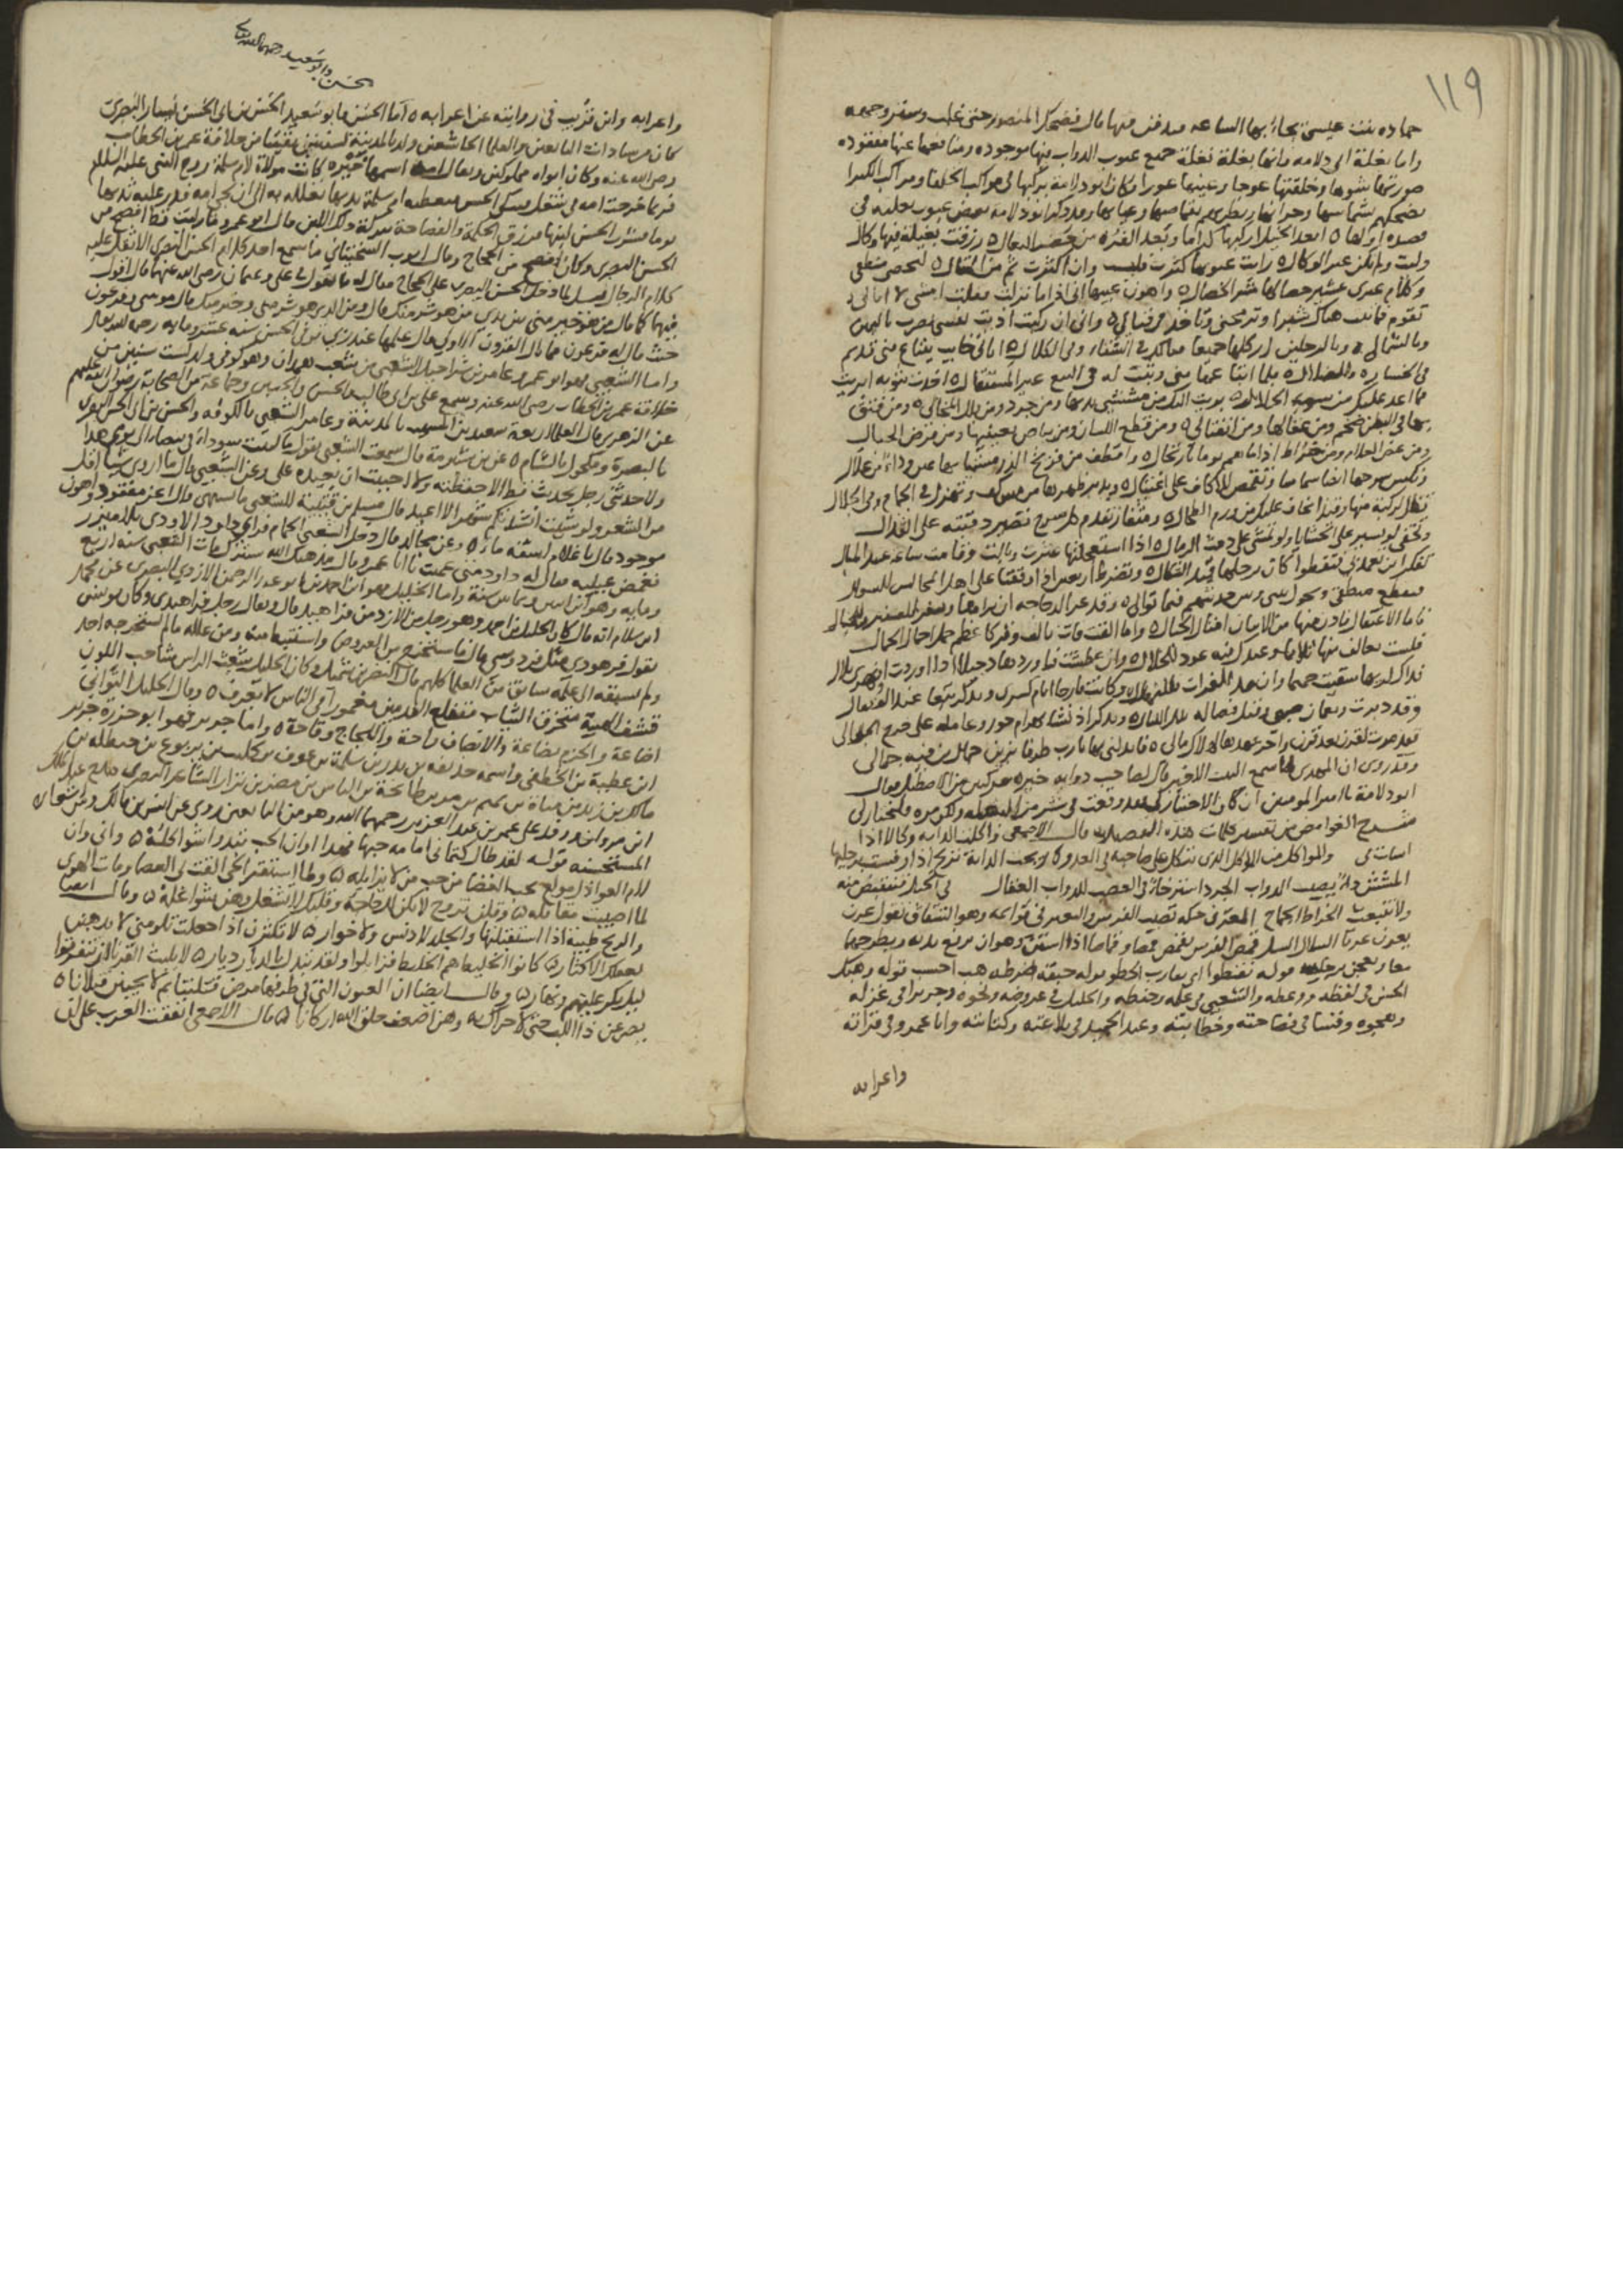 ١١٩
حماده بنت عيسى يجاء بها الساعه فتدفن فيها قال فضحك المنصور حتى غلب وستر وجهه
واما بغلة ابي دلامه فانها بغلة جميع عيوب الدواب فيها موجوده ومنافعها عنها مفقوده
صورتها شوها وخلقتها عوجا وعينها عورا وكان ابو دلامة يركبها في مواكب الخلفا ومراكب الكبرا
يضحكهم بشماسها وحرانها
قصده اولها ٥ ابعد الخيل اركبها كراما وبعد الفره من خضر البغال ٥ رزقت بغيلة فيها وكال
وليت ولم يكن غير الوكال ٥ رايت عيوبها كثرت وليست وان اكثرت ثم من المقال ٥ ليحصى منطقي
وكلام غيري عشير خصالها شر الخصال ٥ واهون عيبها اني اذا ما نزلت وقلت امشي لا تبالي ٥
تقوم فما تبت هناك شبرا وترمحني وتاخذ في قتالي ٥ واني ان ركبت اذيت نفسي بضرب باليمين
وبالشمال ٥ وبالرجلين اركلها جميعا فيالك في الشقاء وفي الكلال ٥ اتاني خايب يبتاع مني قديم
في الخساره والضلال ٥ فلما ابتاعها مني وبتت له في البيع غير المستقال ٥ اخذت بثوبه ابريت
مما اعد عليك من سو الخلال ٥ برئت اليك من مشش يديها ومن جرد ومن بلل المخالي ٥ ومن فتق
بها في البطن ضخم ومن عقالها ومن انفتالي ٥ ومن قطع اللسان ومن بياض بعينيها ومن قرض الحبال
واقطف من فريخ الذر مشيا بها عرن وداء من سلال
وتكسر سرجها ابدا شماسا وتقمص للاكاف على اغتيال ٥ ويدبر ظهرها من مس كف وتهزل في الجمام وفي الجلال
تظل لركبة منها وقيذا يخاف عليك من ورم الطحال ٥ ومثفار تقدم كل سرج تصير دفتيه على القذال
وتحفى لو تسير على الحشايا ولو تمشي على دمث الرمال ٥ اذا استعجلتها عثرت وبالت وقامت ساعه عند المبال
وتضرط اربعين اذا وقفنا على اهل المجالس للسوال
فتقطع منطقي وتحول بيني وبين حديثهم فيما توالي ٥ وقد
فاما الاعتلاف فادن منها من الاتبان امثال الجبال ٥ واما القت فات بالف وقر كاعظم حمل احمال الجمال
فلست بعالف منها ثلاثا وعندك منه عود للخلال ٥ وان عطشت فاوردها دجيلا اذا اوردت او نهري بلال
فذاك لريها سقيت حميما وان مد الفرات فللنهال ٥ وكانت قارحا ايام كسرى وتذكر تبعا عند الفصال
وقد دبرت ونعمان صبي وقبل فصاله تلك الليالي ٥ وتذكر اذ نشا بهرام جور وعامله على خرج الجوالي
وقد مرت لقرن بعد قرن واخر عهدها لهلاك مالي ٥ فابدلني بها يارب طرفا يزين حمال مركبه جمالي
وقد روي ان المهدي لما سمع البيت الاخير قال لصاحب دوابه خيره مركبين من الاصطبل فقال
ابو دلامة يا امير المومنين ان كان الاختيار لي وقعت في شر من البغله ولكن مره فليختار لي
شرح الغوامض من تفسير كلمات هذه القصيده قال الاصمعي واكلت الدابه وكالا اذا
اسات والمواكل من المواكل الذي يتكل على صاحبه في العدو
المشش داء يصيب الدواب الجرد استرخا في العصب للدواب العقال
ولا تنبعث الخراط الجماح العرن حكه تصيب الفرس والبعير في قوائمه وهو التشقاق تقول عرنت
قمص الفرس يقمص قمصا وقماصا اذا استن وهو ان يرفع يديه ويطرحهما
معا ويعجن برجليه قوله تقنطوا اي يقارب الخطو قوله حبقه اضرطه هب احسب قوله وهبك
الحسن في لفظه ووعظه والشعبي في علمه وحفظه والخليل في عروضه ونحوه وجريرا في غزله
وهجوه وقسا في فصاحته وخطابته وعبد الحميد في بلاغته وكتابته وابا عمرو في قراته
واعرابه
الحسن وابو سعيد رحمهما الله تعالى
واعرابه وابن قريب في روايته عن اعرابه ٥ اما الحسن فابو سعيد الحسن بن ابي الحسن يسار البصري
كان من سادات التابعين والعلما الخاشعين ولد بالمدينة لسنتين بقيتا من خلافة عمر بن الخطاب
رضي الله عنه وكان ابواه مملوكين ويقال امه اسمها خيره كانت مولاة لام سلمة زوج النبي عليه السلام
فربما خرجت امه في شغل فيبكي الحسن فتعطيه ام سلمة ثديها تعلله به الى ان تجي امه فدر عليه ثديها
يوما فشرب الحسن لبنها فرزق الحكمة والفصاحة ببركة ذلك اللبن قال ابو عمرو ما رايت قط افصح من
الحسن البصري وكان افصح من الحجاج وقال ايوب السختياني ما سمع احد كلام الحسن البصري الا ثقل عليه
كلام الرجال قيل لما دخل الحسن البصري على الحجاج فقال له ما تقول في علي وعثمان رضي الله عنهما قال اقول
فيهما كما قال من هو خير مني بين يدي من هو شر منك قال ومن الذي هو شر مني وخير منك قال موسى وفرعون
حيث قال له فرعون فما بال القرون الاولى قال علمها عند ربي توفي الحسن سنه عشر ومايه رحمه الله تعالى
واما الشعبي فهو ابو عمرو عامر بن شراحيل الشعبي من شعب همدان وهو كوفي ولد لست سنين من
خلافة عمر بن الخطاب رضي الله عنه وسمع علي بن ابي طالب والحسن والحسين وجماعة من الصحابة رضوان الله عليهم
عن الزهري قال العلما اربعة سعيد بن المسيب بالمدينة وعامر الشعبي بالكوفه والحسن بن ابي الحسن البصري
بالبصرة ومكحول بالشام ٥ عن بن شبرمة قال سمعت الشعبي يقول ما كتبت سوداء في بيضا الى يومي هذا
ولا حدثني رجل بحديث قط الا حفظته ولا احببت ان يعيده علي وعن الشعبي قال ما اروي شيا اقل
من الشعر ولو شيت انشدتكم شهرا لا اعيد قال مسلم بن قتيبة للشعبي ما تشتهي قال اعز مفقود واهون
موجود قال يا غلام اسقه ماء ٥ وعن مجالد قال دخل الشعبي الحمام فراى داود الاودي بلا ميزر
فغمض عينيه فقال له داود متى عميت يا ابا عمرو قال منذ هتك الله سترك مات الشعبي سنه اربع
ومايه وهو ابن اثنين وثمانين سنة واما الخليل فهو ابن احمد بن ابو عبد الرحمن الازدي البصري عن محمد
ابن سلام انه قال كان الخليل بن احمد وهو رجل من الازد من فراهيد قال ويقال رجل فراهيدي وكان يونس
يقول فرهودي مثل فردوسي قال فاستخرج من العروض واستنبط منه ومن علله ما لم يستخرجه احد
ولم يسبقه الى علمه سابق من العلما كلهم قال النضر بن شميل وكان الخليل شعث الراس شاحب اللون
قشف الهيئة متخرق الثياب متفلع القدمين مغمورا في الناس لا يعرف ٥ وقال الخليل التواني
اضاعة والحزم بضاعة والانصاف راحة واللجاج وقاحة ٥ واما جرير فهو ابو حزرة جرير
ابن عطية بن الخطفى واسمه حذيفه بن بدر بن سلمة بن عوف بن كليب بن يربوع بن حنظله بن
مالك بن زيد مناة بن تميم بن مر بن طابخة بن الياس بن مضر بن نزار الشاعر البصري مدح عبد الملك
ابن مروان ووفد على عمر بن عبد العزيز رحمهما الله وهو من التابعين روى عن انس بن مالك ومن شعاره
المستحسنه قوله لقد طال كتماني امامه حبها فهذا اوان الحب تبدوا شواكله ٥ واني وان
لام العواذل مولع بحب الغضا من حب من لا يزايله ٥ ولما استقر الحي القت لي العصا ومات الهوى
لما اصيبت مقاتله ٥ وقلن تروح لا تكن لك حاجة وقلبك لا تشغل وهن شواغله ٥ وقال ايضا
والريح طيبة اذا استقبلتها والجلد لا دنس ولا خوار ٥ لا تكثرن اذا جعلت تلومني لا يذهبن
بحلمك الاكثار ٥ كانوا الخليط هم الخليط فزايلوا ولقد تبدل بالديار ديار ٥ لا يلبث القرنا ان يتفرقوا
ليل يكر عليهم ونهار ٥ وقال ايضا ان العيون التي في طرفها مرض قتلننا ثم لا يحيين قتلانا ٥
يصرعن ذا اللب حتى لا حراك به وهن اضعف خلق الله اركانا ٥ قال الاصمعي اتفقت العرب على ان